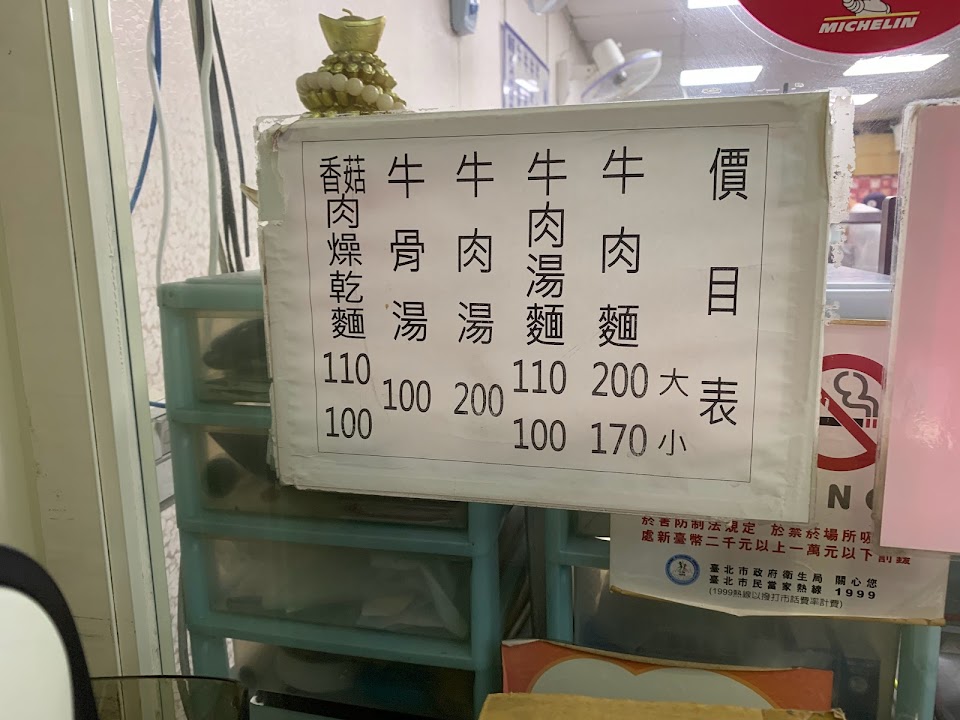 MICHELIN
價目表
大 小
牛肉麵 200 170
牛肉湯麵 110 100
牛肉湯 200
牛骨湯 100
香菇肉燥乾麵 110 100
NO
菸害防制法規定 於禁菸場所吸
處新臺幣二千元以上一萬元以下罰鍰
臺北市政府衛生局 關心您
臺北市民當家熱線 1999
(1999熱線以撥打市話費率計費)